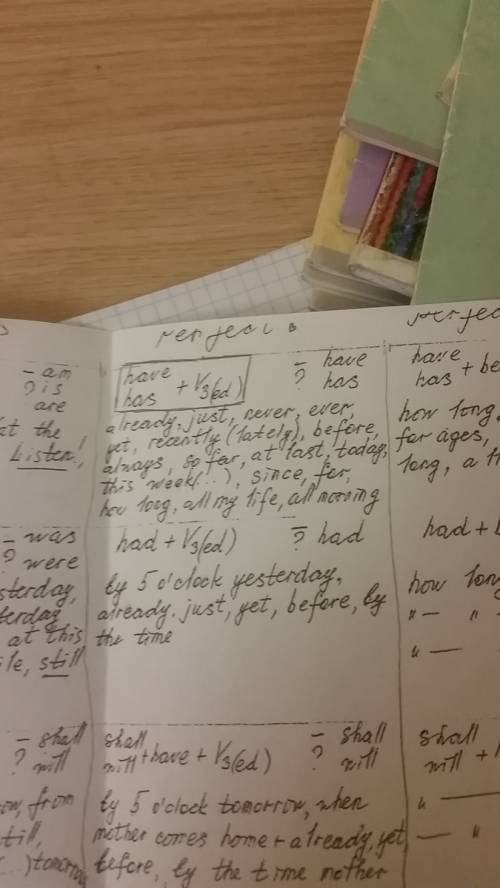 Perfect
have
has + V3(ed)
– have
? has
already, just, never, ever,
yet, recently (lately), before,
always, so far, at last, today,
this week(...), since, for,
how long, all my life, all morning
had + V3(ed)
– had
?
by 5 o'clock yesterday,
already, just, yet, before, by
the time
shall
will + have + V3(ed)
– shall
? will
by 5 o'clock tomorrow, when
mother comes home + already, yet,
before, by the time mother
– am
? is
are
at the
Listen!
– was
? were
at this
still
– shall
? will
from
tomorrow
have
has +
how long,
for ages,
long, a
had +
how long
" — "
" —
shall
will +
" —
— "